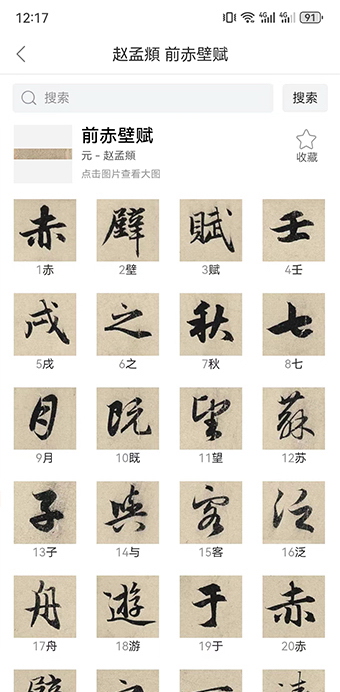 12:17
4G 4G 91
赵孟頫 前赤壁赋
搜索 搜索
前赤壁赋
元 - 赵孟頫
点击图片查看大图
收藏
赤 壁 賦 壬
1赤 2壁 3赋 4壬
戌 之 秋 七
5戌 6之 7秋 8七
月 既 望 蘇
9月 10既 11望 12苏
子 與 客 泛
13子 14与 15客 16泛
舟 遊 于 赤
17舟 18游 19于 20赤